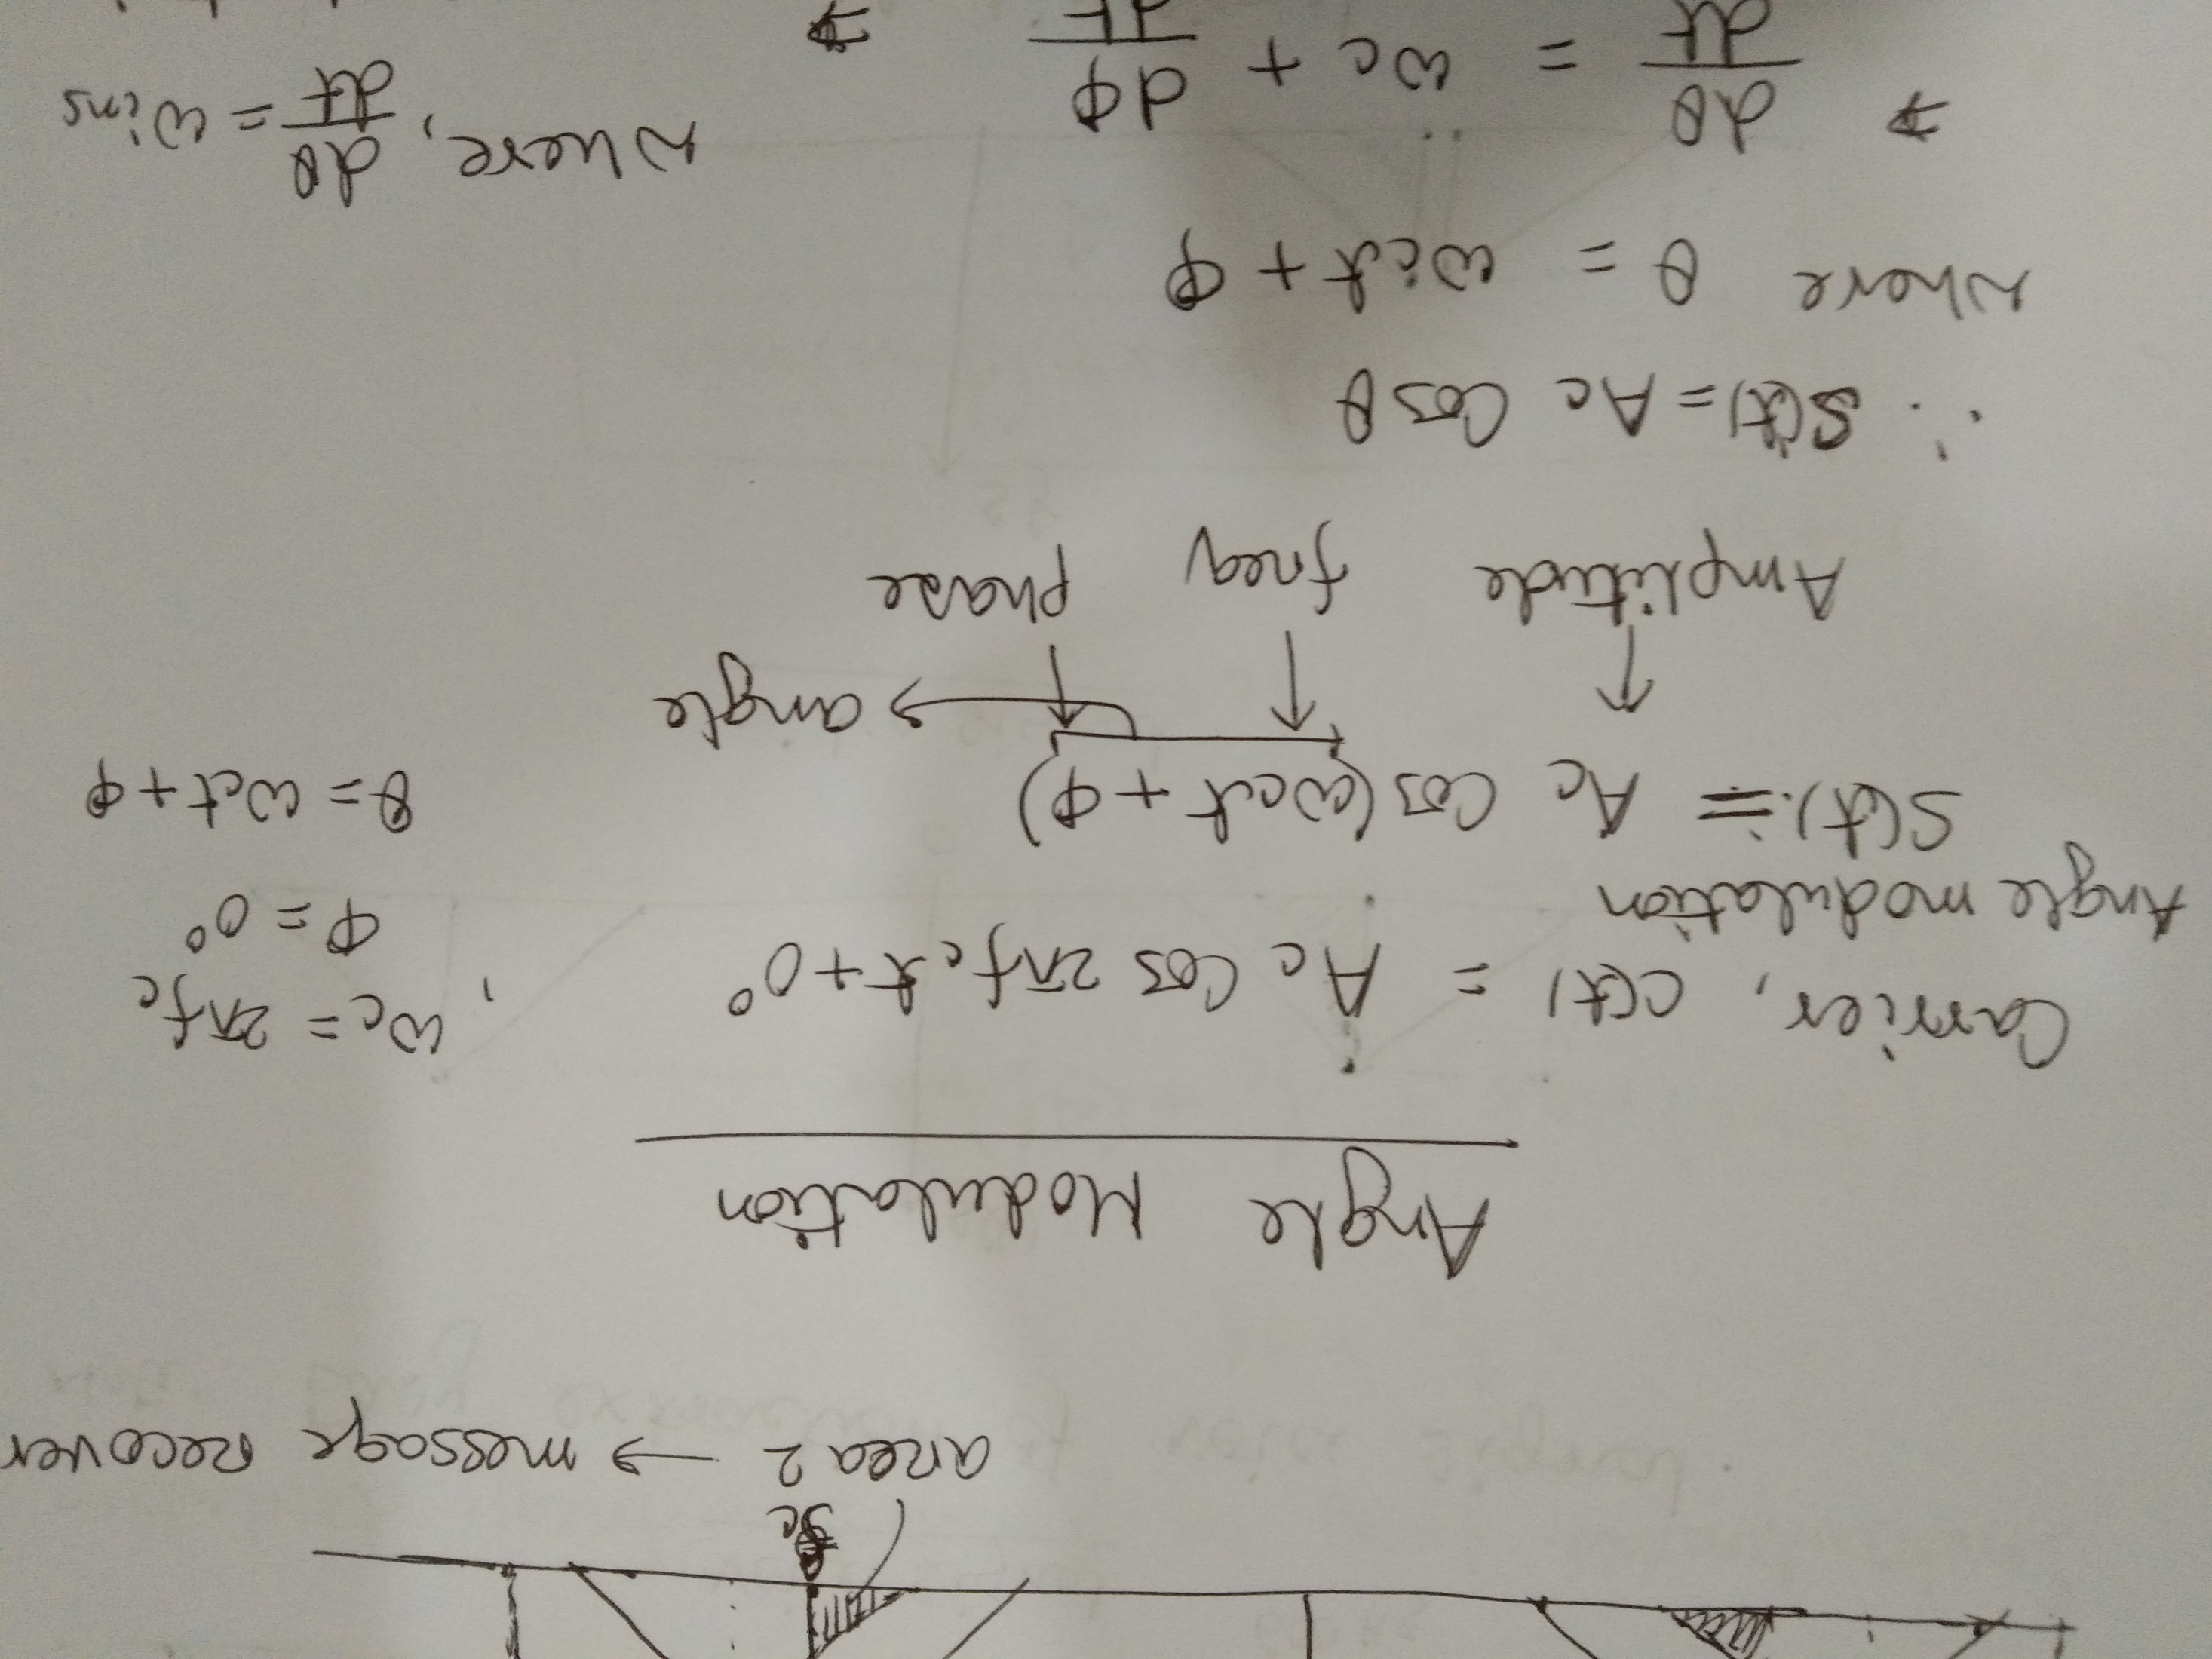 fc
area 2 → message recover
Angle Modulation
Carrier, c(t) = Ac Cos 2πfct + 0° , ωc = 2πfc
φ = 0°
Angle modulation
S(t) = Ac Cos(ωct + φ) θ = ωct + φ
→ angle
Amplitude freq phase
∴ S(t) = Ac Cos θ
where θ = ωct + φ
→ dθ/dt = ωc + dφ/dt → where, dθ/dt = ωins